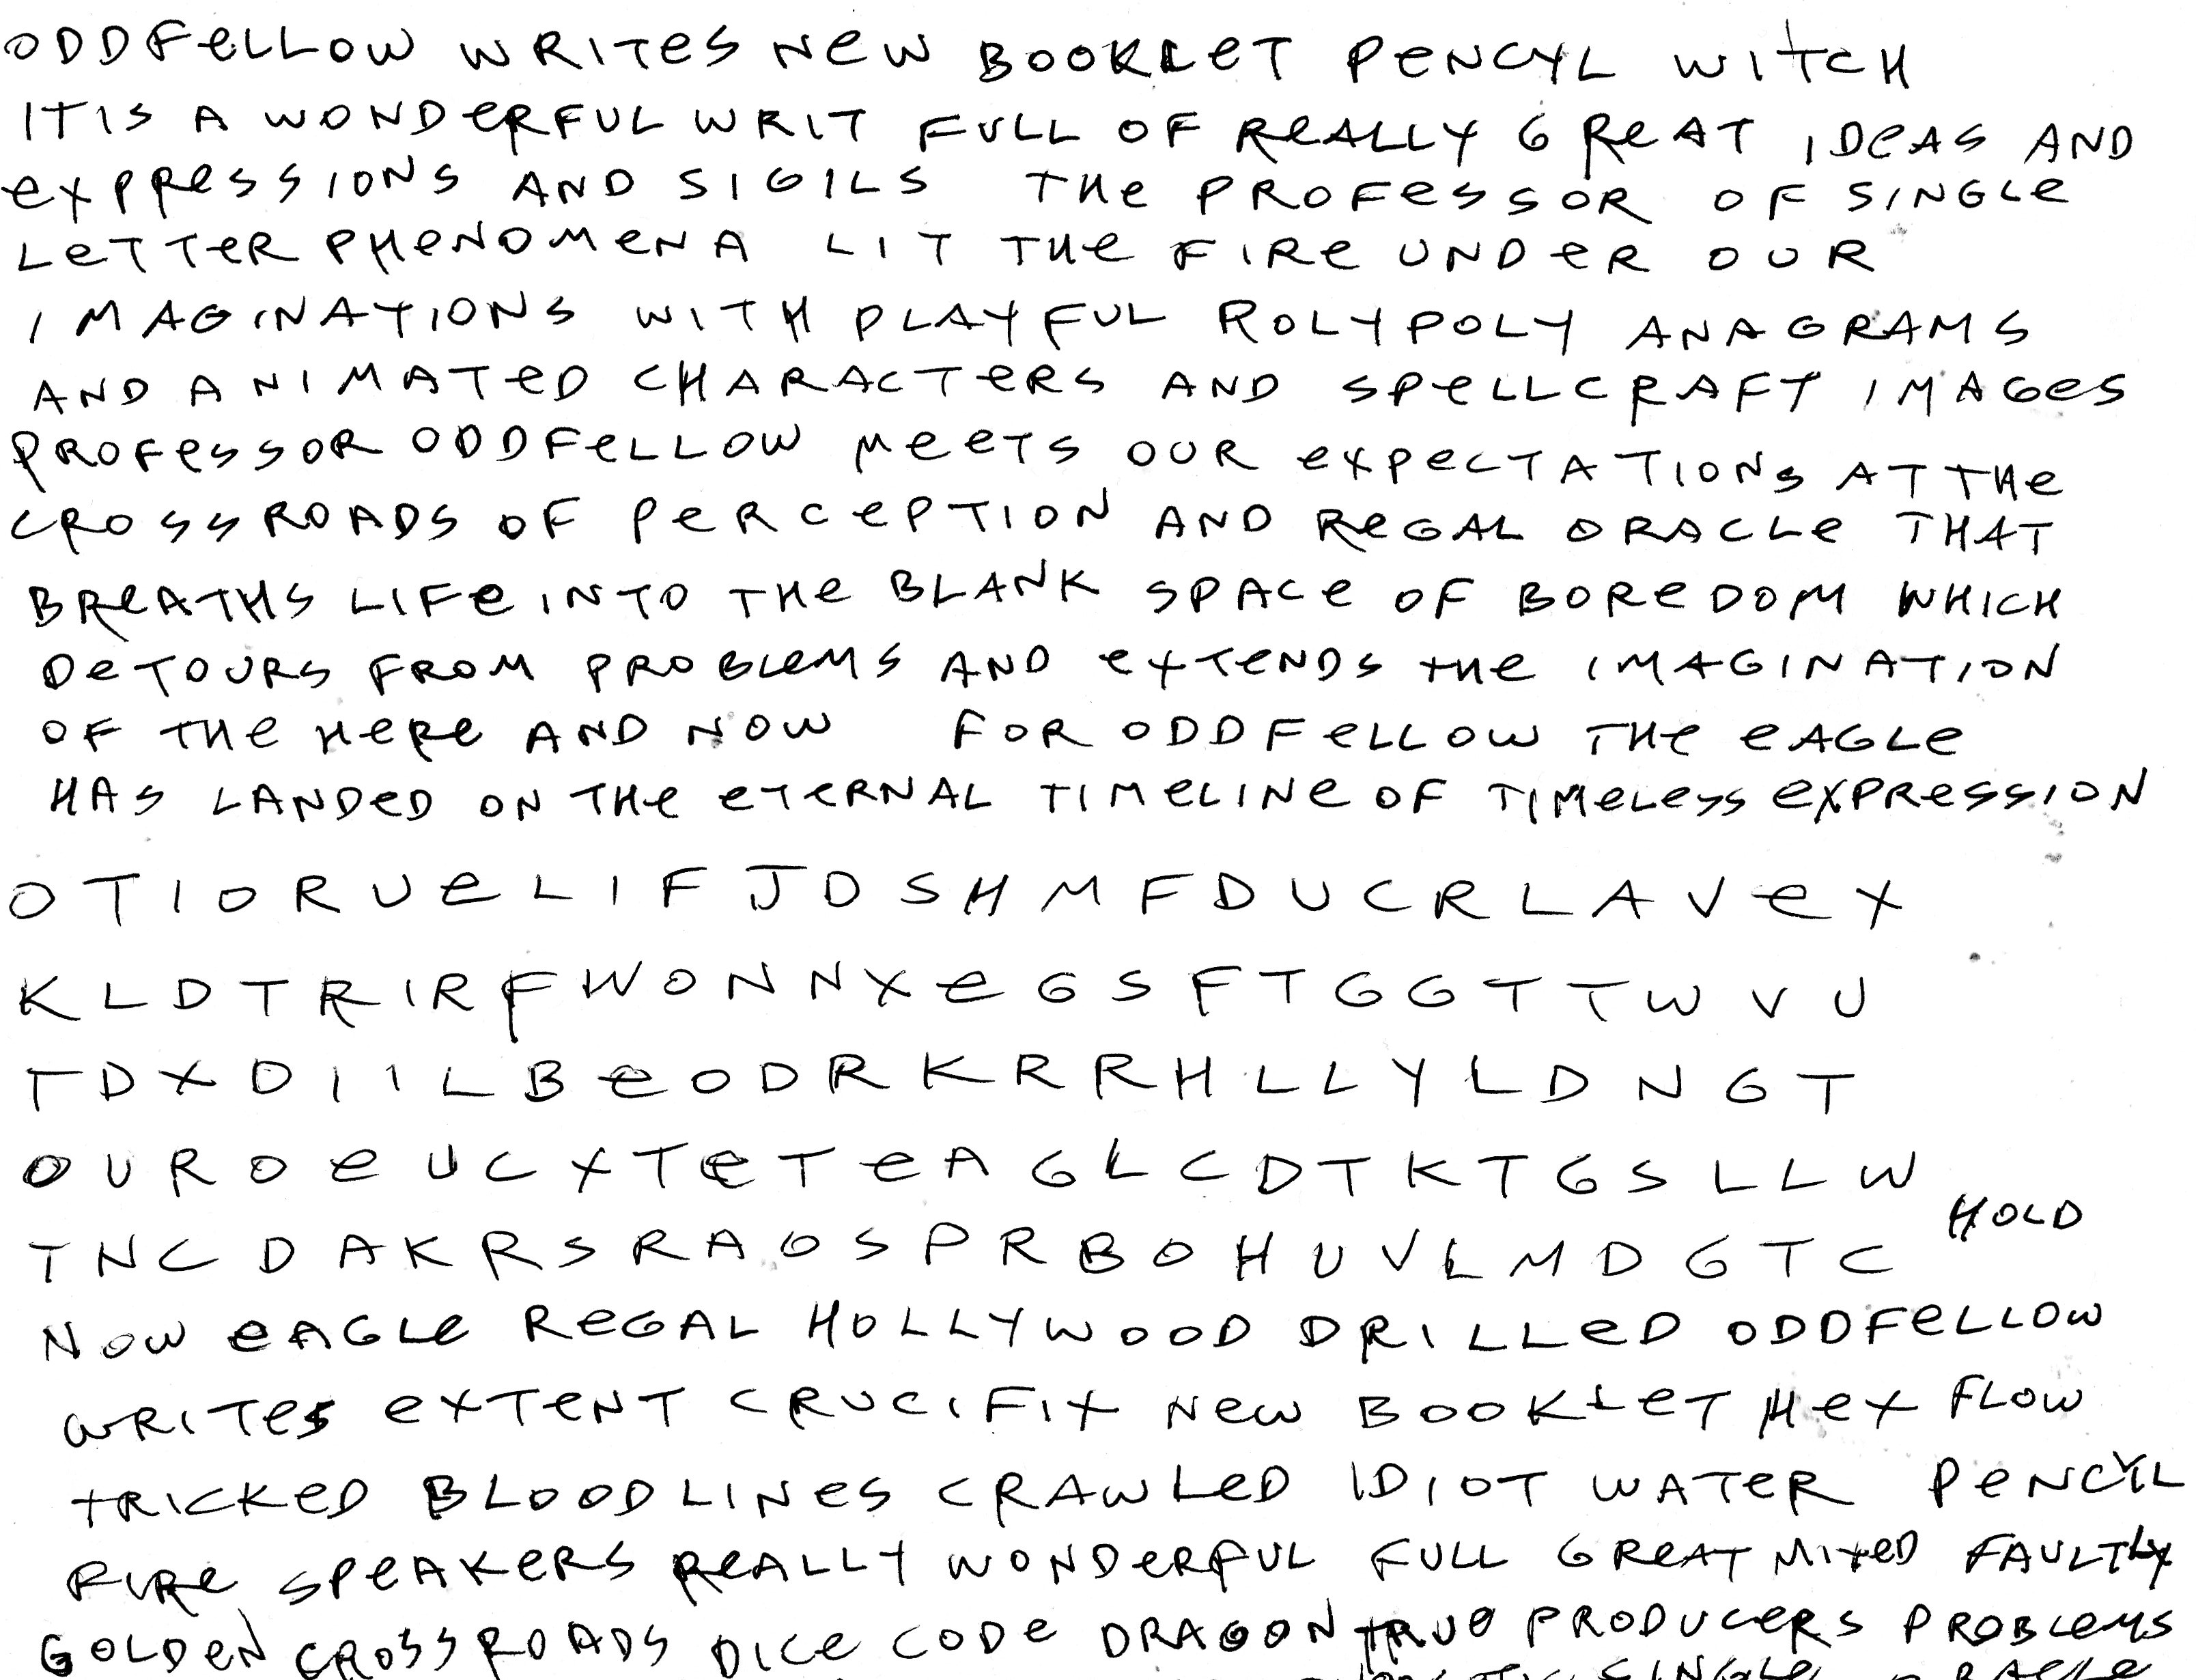 ODDFeLLOW WRITeS NeW BOOKLeT PeNCYL WITCH
ITIS A WONDeRFUL WRIT FULL OF ReALLY GReAT IDeAS AND
eXPReSSIONS AND SIGILS THe PROFeSSOR OF SINGLe
LeTTeR PHeNOMeNA LIT THe FIRe UNDeR OUR
IMAGINATIONS WITH PLAYFUL ROLYPOLY ANAGRAMS
AND ANIMATeD CHARACTeRS AND SPeLLCRAFT IMAGeS
PROFeSSOR ODDFeLLOW MeeTS OUR eXPeCTATIONS AT THe
CROSSROADS OF PeRCePTION AND ReGAL ORACLe THAT
BReATHS LIFe INTO THe BLANK SPACe OF BOReDOM WHICH
DeTOURS FROM PROBLeMS AND eXTeNDS THe IMAGINATION
OF THe HeRe AND NOW FOR ODDFeLLOW THe eAGLe
HAS LANDeD ON THe eTeRNAL TIMeLINe OF TIMeLeSS eXPReSSION
O T I O R U e L I F J D S H M F D U C R L A V e X
K L D T R I R F W O N N X e G S F T G G T T W V U
T D X D I I L B e O D R K R R H L L Y L D N G T
O U R O e U C X T e T e A G L C D T K T G S L L W
T N C D A K R S R A O S P R B O H U V L M D G T C HOLD
NOW eAGLe ReGAL HOLLYWOOD DRILLeD ODDFeLLOW
WRITeS eXTeNT CRUCIFIX NeW BOOKLeT HeX FLOW
TRICKeD BLOODLINeS CRAWLeD IDIOT WATeR PeNCYL
FIRe SPeAKeRS ReALLY WONDeRFUL FULL GReAT MIXeD FAULTY
GOLDeN CROSSROADS DICe CODe DRAGON TRUe PRODUCeRS PROBLeMS
SINGLe